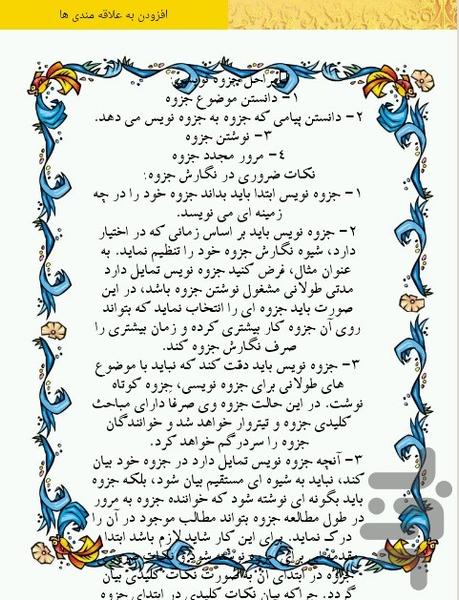 افزودن به علاقه مندی ها
مراحل جزوه نویسی
۱- دانستن موضوع جزوه
۲- دانستن پیامی که جزوه به جزوه نویس می دهد.
۳- نوشتن جزوه
۴- مرور مجدد جزوه
نکات ضروری در نگارش جزوه:
۱- جزوه نویس ابتدا باید بداند جزوه خود را در چه
زمینه ای می نویسد.
۲- جزوه نویس باید بر اساس زمانی که در اختیار
دارد، شیوه نگارش جزوه خود را تنظیم نماید. به
عنوان مثال، فرض کنید جزوه نویس تمایل دارد
مدتی طولانی مشغول نوشتن جزوه باشد، در این
صورت باید جزوه ای را انتخاب نماید که بتواند
روی آن جزوه کار بیشتری کرده و زمان بیشتری را
صرف نگارش جزوه کند.
۳- جزوه نویس باید دقت کند که نباید با موضوع
های طولانی برای جزوه نویسی، جزوه کوتاه
نوشت. در این حالت جزوه وی صرفا دارای مباحث
کلیدی جزوه و تیتروار خواهد شد و خوانندگان
جزوه را سردرگم خواهد کرد.
۳- آنچه جزوه نویس تمایل دارد در جزوه خود بیان
کند، نباید به شیوه ای مستقیم بیان شود، بلکه جزوه
باید بگونه ای نوشته شود که خواننده جزوه به مرور
در طول مطالعه جزوه بتواند مطالب موجود در آن را
درک نماید. برای این کار شاید لازم باشد ابتدا
جزوه در ابتدای آن به صورت نکات کلیدی بیان
گردد. چراکه بیان نکات کلیدی در ابتدای جزوه